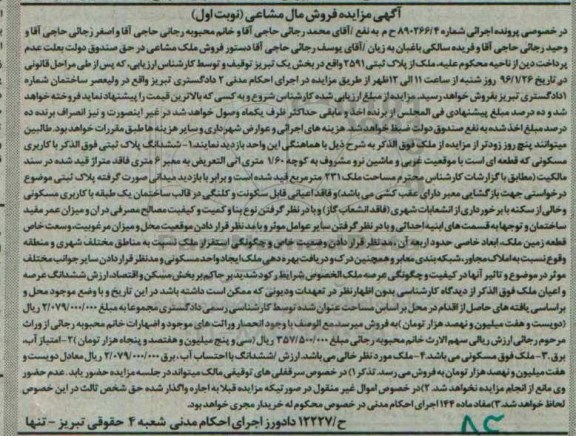 آگهی مزایده فروش مال مشاعی (نوبت اول)
در خصوصی پرونده اجرائی شماره ۸۹۰۲۶۶/۴ ح م به نفع /آقای محمد رجائی حاجی آقا و خانم محبوبه رجائی حاجی آقا و اصغر رجائی حاجی آقا و
وحید رجائی حاجی آقا و فریده سالکی باغبان به زیان /آقای یوسف رجائی حاجی آقا دستور فروش ملک مشاعی در حق صندوق دولت بعلت عدم
پرداخت دین از ناحیه محکوم علیه، ملک از پلاک ثبتی ۲۵۹۱ واقع در بخش یک تبریز توقیف و توسط کارشناس ارزیابی، که پس از طی مراحل قانونی
در تاریخ ۹۶/۱/۲۶ روز شنبه از ساعت ۱۱ الی ۱۲ظهر از طریق مزایده در اجرای احکام مدنی ۲ دادگستری تبریز واقع در ولیعصر ساختمان شماره
۱دادگستری تبریز بفروش خواهد رسید. مزایده از مبلغ ارزیابی شده کارشناس شروع و به کسی که بالاترین قیمت را پیشنهاد نماید فروخته خواهد
شد و ده درصد مبلغ پیشنهادی فی المجلس از برنده اخذ و مابقی حداکثر ظرف یکماه وصول خواهد شد در غیر اینصورت و نیز انصراف برنده ده
درصد مبلغ اخذ شده به نفع صندوق دولت ضبط خواهد شد. هزینه های اجرائی و عوارض شهرداری و سایر هزینه ها طبق مقررات خواهد بود. طالبین
میتوانند پنج روز زودتر از مزایده از ملک فوق الذکر به شرح ذیل با هماهنگی این واحد بازدید نمایند: ۱- ششدانگ پلاک ثبتی فوق الذکر با کاربری
مسکونی که قطعه ای است با موقعیت غربی و ماشین نرو مشروف به کوچه ۱/۶۰ متری اتی التعریض به معبر ۶ متری فاقد متراژ قید شده در سند
مالکیت (مطابق با گزارشات کارشناس محترم مساحت ملک ۲۳۱ مترمربع قید شده است و برابر با بازدید میدانی صورت گرفته پلاک ثبتی موضوع
درخواستی جهت بازگشایی معبر دارای عقب کشی می باشد) و فاقد اعیانی قابل سکونت و کلنگی در قالب ساختمان یک طبقه با کاربری مسکونی
و خالی از سکنه با برخورداری از انشعابات شهری (فاقد انشعاب گاز) و با در نظر گرفتن نوع بنا و کمیت و کیفیت مصالح مصرفی در ان و میزان عمر مفید
ساختمان و توجها به قسمت های ابنیه احداثی و با در نظر گرفتن سایر عوامل موثر و با مد نظر قرار دادن موقعیت محل و میزان مرغوبیت، وسعت خاص
قطعه زمین ملک، ابعاد خاصی حدود اربعه آن، مد نظر قرار دادن وضعیت خاص و چگونگی استقرار ملک نسبت به مناطق مختلف شهری و منطقه
وقوع نسبت به املاک مجاور، شبکه بندی معابر و همچنین درک و دریافت بهره دهی ملک ایجاد واحد مسکونی و مدنظر قرار دادن سایر جوانب مختلف
موثر در موضوع و تاثیر آنها در کیفیت و چگونگی عرصه ملک الخصوص شرایط رکود شدید بر حاکم بر بخش مسکن و اقتصاد، ارزش ششدانگ عرصه
و اعیان ملک فوق الذکر از دیدگاه کارشناسی بدون اظهارنظر در تعهدات و دیونی که ممکن است داشته باشد در این تاریخ و با وضع موجود محل و
براساسی یافته های حاصل از اقدام در محل بر اساس مساحت عنوان شده توسط کارشناسی رسمی دادگستری مجموعا به مبلغ ۲/۰۷۹/۰۰۰/۰۰۰ ریال
(دویست و هفت میلیون و نهصد هزار تومان) به فروش میرسد مع الوصف با وجود انحصار وراثت های موجود و اضهارات خانم محبوبه رجائی از وراث
مرحوم رجائی ارزش ریالی سهم الارث خانم محبوبه رجائی مبلغ ۳۵۷/۵۰۰/۰۰۰ ریال (سی و پنج میلیون و هفتصد و پنجاه هزار تومان) ۲-امتیاز آب،
برق. ۳- ملک فوق مسکونی می باشد. ۴- ملک مورد نظر خالی می باشد. ارزش /ششدانگ با احتساب آب، برق ۲/۰۷۹/۰۰۰/۰۰۰ ریال معادل دویست و
هفت میلیون و نهصد هزار تومان به فروش می رسد. تذکر ۱) در خصوص سرقفلی های توقیفی مالک میتواند در جلسه مزایده حضور یابد. عدم حضور
وی مانع از انجام مزایده نخواهد شد. ۲) در خصوص اموال غیر منقول در صورتیکه مزایده قبلا به اجاره واگذار شده حق شخص ثالث در این خصوص
لحاظ خواهد شد. ۳) مفاد ماده ۱۴۴ اجرای احکام مدنی در خصوص محکوم له خریدار مجری خواهد بود.
ح/۱۲۲۲۷ دادورز اجرای احکام مدنی شعبه ۴ حقوقی تبریز - تنها